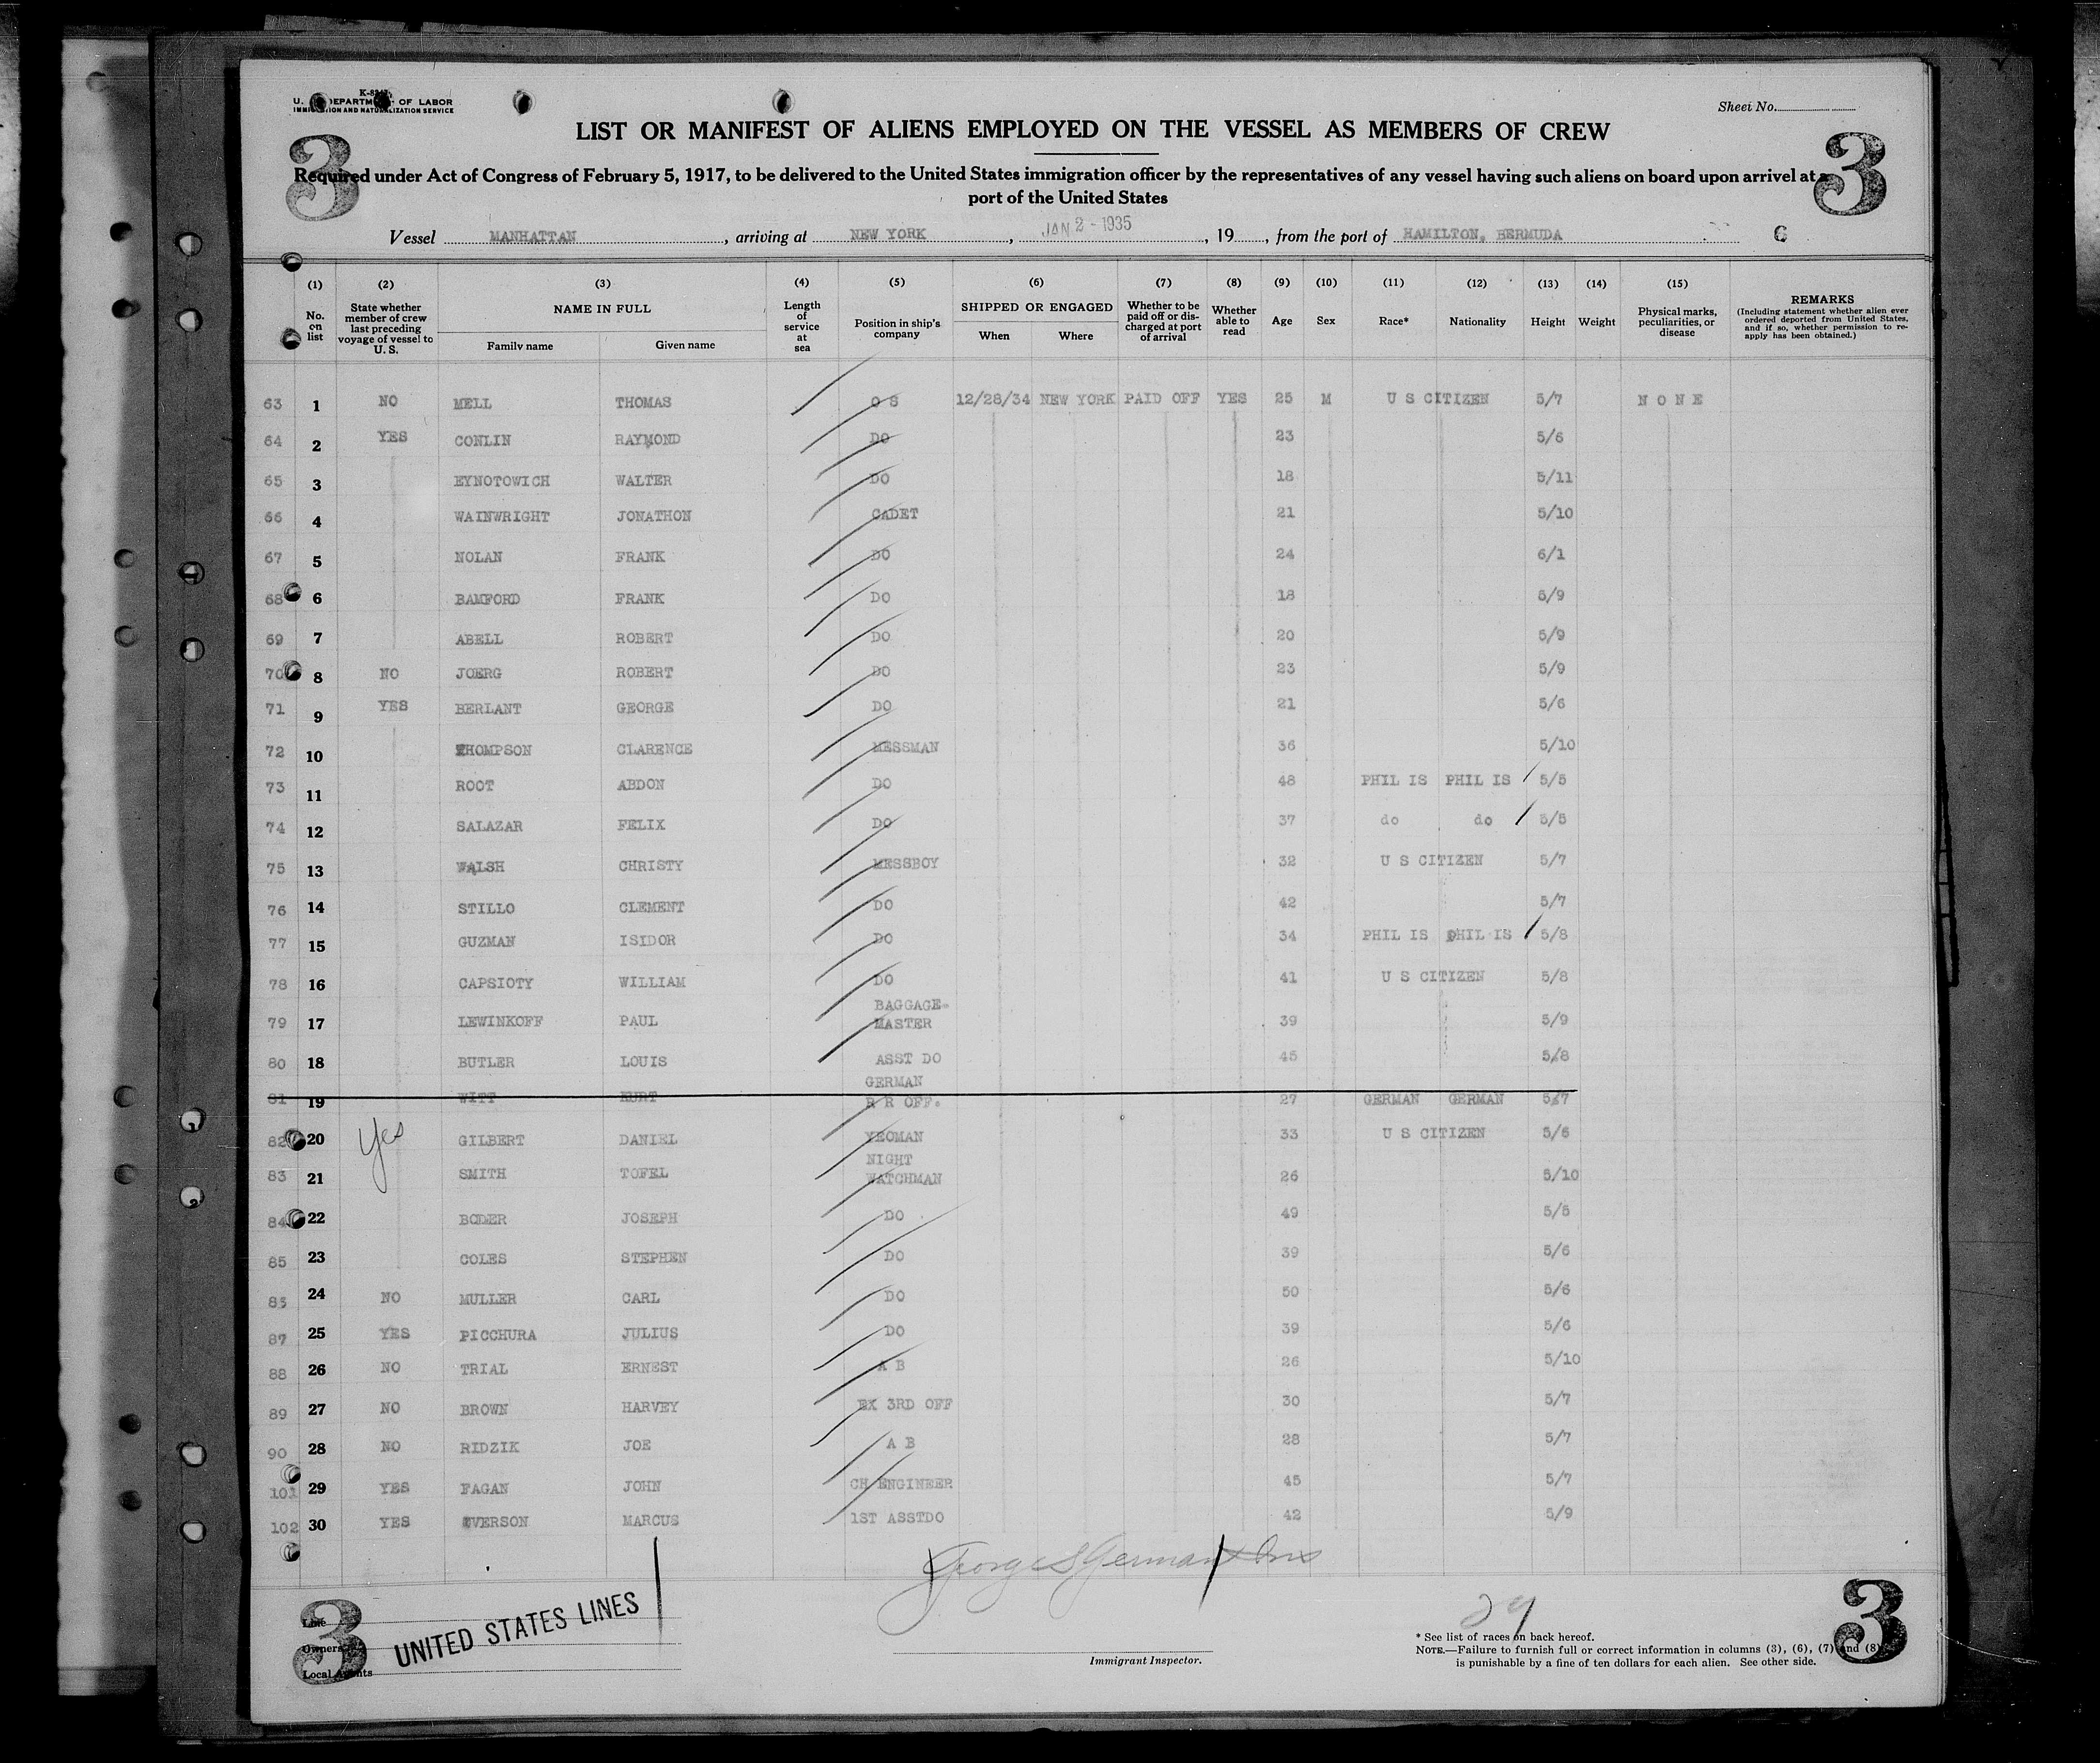 U. DEPARTMENT OF LABOR
IMMIGRATION AND NATURALIZATION SERVICE
Sheet No.
3
3
LIST OR MANIFEST OF ALIENS EMPLOYED ON THE VESSEL AS MEMBERS OF CREW
Required under Act of Congress of February 5, 1917, to be delivered to the United States immigration officer by the representatives of any vessel having such aliens on board upon arrival at a
port of the United States
Vessel MANHATTAN, arriving at NEW YORK, JAN 2 - 1935, 19, from the port of HAMILTON, BERMUDA
(1) (2) (3) (4) (5) (6) (7) (8) (9) (10) (11) (12) (13) (14) (15)
No. on list
State whether member of crew last preceding voyage of vessel to U. S.
NAME IN FULL
Family name
Given name
Length of service at sea
Position in ship's company
SHIPPED OR ENGAGED
When
Where
Whether to be paid off or discharged at port of arrival
Whether able to read
Age
Sex
Race*
Nationality
Height
Weight
Physical marks, peculiarities, or disease
REMARKS
(Including statement whether alien ever ordered deported from United States, and if so, whether permission to reapply has been obtained.)
63 1 NO MELL THOMAS O S 12/28/34 NEW YORK PAID OFF YES 25 M U S CITIZEN 5/7 N O N E
64 2 YES CONLIN RAYMOND DO 23 5/6
65 3 EYNOTOWICH WALTER DO 18 5/11
66 4 WAINWRIGHT JONATHON CADET 21 5/10
67 5 NOLAN FRANK DO 24 6/1
68 6 BAMFORD FRANK DO 18 5/9
69 7 ABELL ROBERT DO 20 5/9
70 8 NO JOERG ROBERT DO 23 5/9
71 9 YES BERLANT GEORGE DO 21 5/6
72 10 THOMPSON CLARENCE MESSMAN 36 5/10
73 11 ROOT ABDON DO 48 PHIL IS PHIL IS 5/5
74 12 SALAZAR FELIX DO 37 do do 5/5
75 13 WALSH CHRISTY MESSBOY 32 U S CITIZEN 5/7
76 14 STILLO CLEMENT DO 42 5/7
77 15 GUZMAN ISIDOR DO 34 PHIL IS PHIL IS 5/8
78 16 CAPSIOTY WILLIAM DO 41 U S CITIZEN 5/8
79 17 LEWINKOFF PAUL BAGGAGE-MASTER 39 5/9
80 18 BUTLER LOUIS ASST DO 45 5/8
81 19 WITT KURT GERMAN R R OFF. 27 GERMAN GERMAN 5/7
82 20 Yes GILBERT DANIEL YEOMAN 33 U S CITIZEN 5/6
83 21 SMITH TOFEL NIGHT WATCHMAN 26 5/10
84 22 BODER JOSEPH DO 49 5/5
85 23 COLES STEPHEN DO 39 5/6
24 NO MULLER CARL DO 50 5/6
87 25 YES PICCHURA JULIUS DO 39 5/6
88 26 NO TRIAL ERNEST A B 26 5/10
89 27 NO BROWN HARVEY EX 3RD OFF 30 5/7
90 28 NO RIDZIK JOE A B 28 5/7
101 29 YES FAGAN JOHN CH ENGINEER 45 5/7
102 30 YES MARCUS 1ST ASSTDO 42 5/9
George S German
Line
Owners
Local Agents
UNITED STATES LINES
Immigrant Inspector.
* See list of races on back hereof.
NOTE.—Failure to furnish full or correct information in columns (3), (6), (7) and (8)
is punishable by a fine of ten dollars for each alien. See other side.
3
3